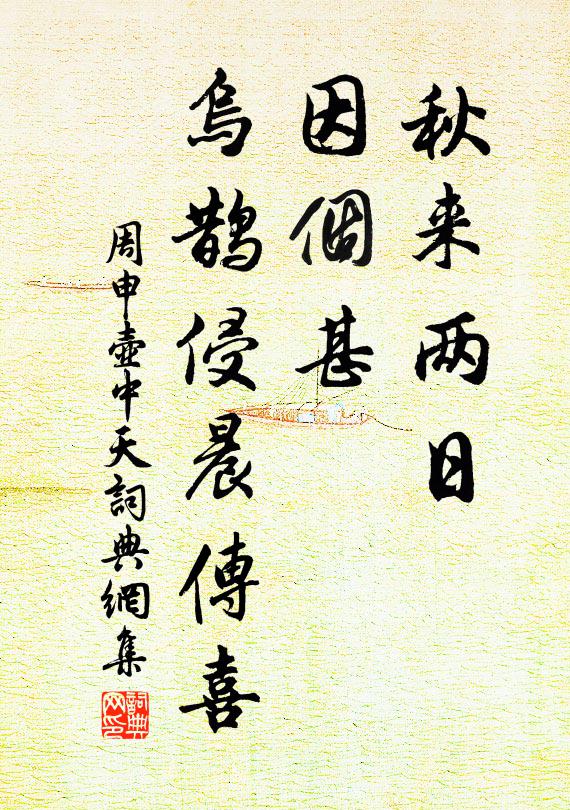 秋来两日
因個甚
烏鵲侵晨傳喜
周申壺中天詞典網集
詞典
网印